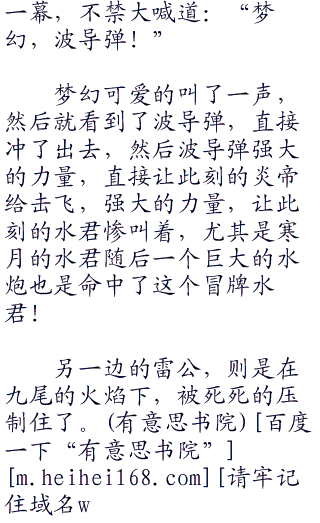 一幕，不禁大喊道：“梦
幻，波导弹！”
梦幻可爱的叫了一声，
然后就看到了波导弹，直接
冲了出去，然后波导弹强大
的力量，直接让此刻的炎帝
给击飞，强大的力量，让此
刻的水君惨叫着，尤其是寒
月的水君随后一个巨大的水
炮也是命中了这个冒牌水
君！
另一边的雷公，则是在
九尾的火焰下，被死死的压
制住了。(有意思书院)[百度
一下“有意思书院”]
[m.heihei168.com][请牢记
住域名w